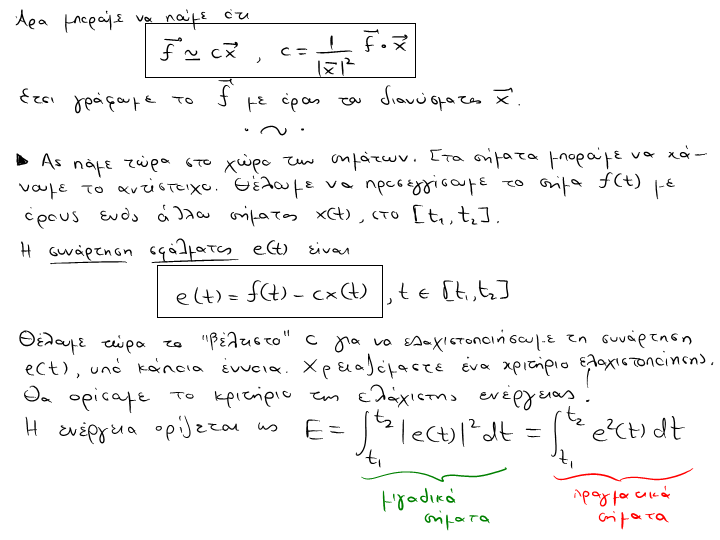 Άρα μπορούμε να πούμε ότι
f⃗ ≃ cx⃗ , c = 1/|x⃗|² f⃗ • x⃗
έτσι γράφουμε το f⃗ με όρους του διανύσματος x⃗.
. ~ .
▶ Ας πάμε τώρα στο χώρο των σημάτων. Στα σήματα μπορούμε να κά-
νουμε το αντίστοιχο. Θέλουμε να προσεγγίσουμε το σήμα f(t) με
όρους ενός άλλου σήματος x(t), στο [t₁, t₂].
Η συνάρτηση σφάλματος e(t) είναι
e(t) = f(t) - cx(t) , t ∈ [t₁, t₂]
Θέλουμε τώρα το "βέλτιστο" c για να ελαχιστοποιήσουμε τη συνάρτηση
e(t), υπό κάποια έννοια. Χρειαζόμαστε ένα κριτήριο ελαχιστοποίησης.
Θα ορίσουμε το κριτήριο της ελάχιστης ενέργειας!
Η ενέργεια ορίζεται ως E = ∫_{t₁}^{t₂} |e(t)|² dt = ∫_{t₁}^{t₂} e²(t) dt
μιγαδικά πραγματικά
σήματα σήματα